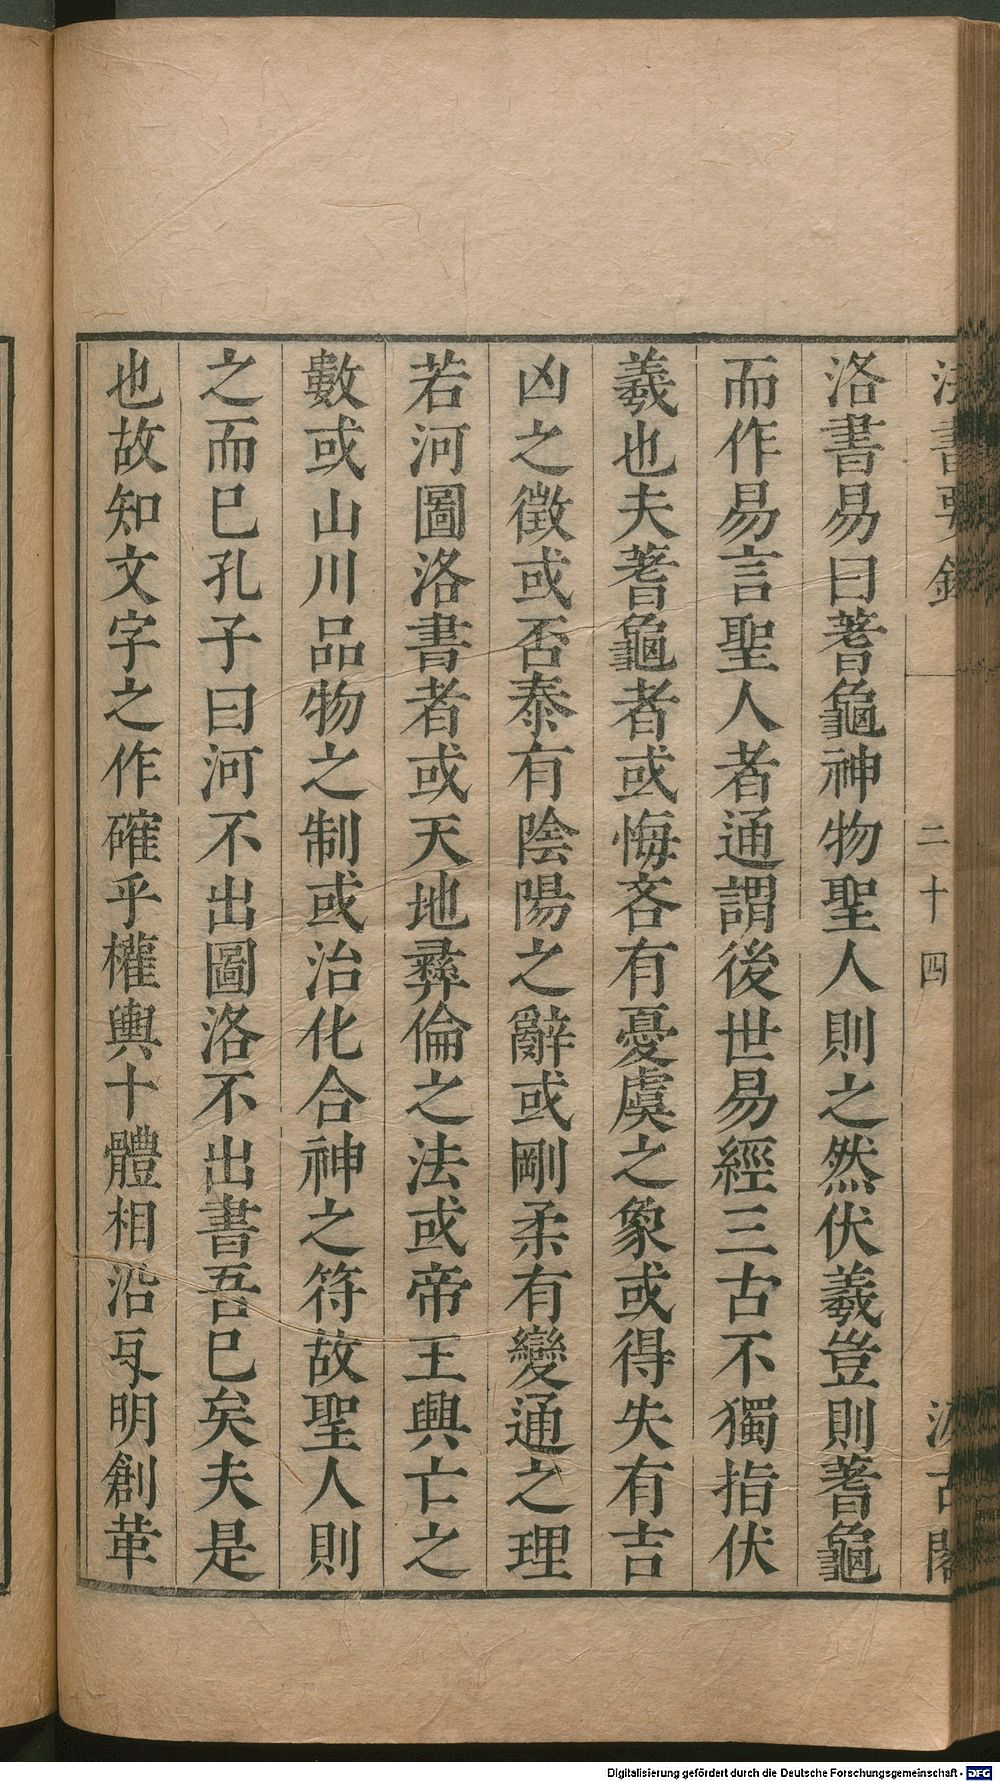 法書要錄 二十四 汲古閣
洛書易曰蓍龜神物聖人則之然伏羲豈則蓍龜
而作易言聖人者通謂後世易經三古不獨指伏
羲也夫蓍龜者或悔吝有憂虞之象或得失有吉
凶之徵或否泰有陰陽之辭或剛柔有變通之理
若河圖洛書者或天地彝倫之法或帝王興亡之
數或山川品物之制或治化合神之符故聖人則
之而巳孔子曰河不出圖洛不出書吾巳矣夫是
也故知文字之作確乎權輿十體相沿互明創革
Digitalisierung gefördert durch die Deutsche Forschungsgemeinschaft - DFG